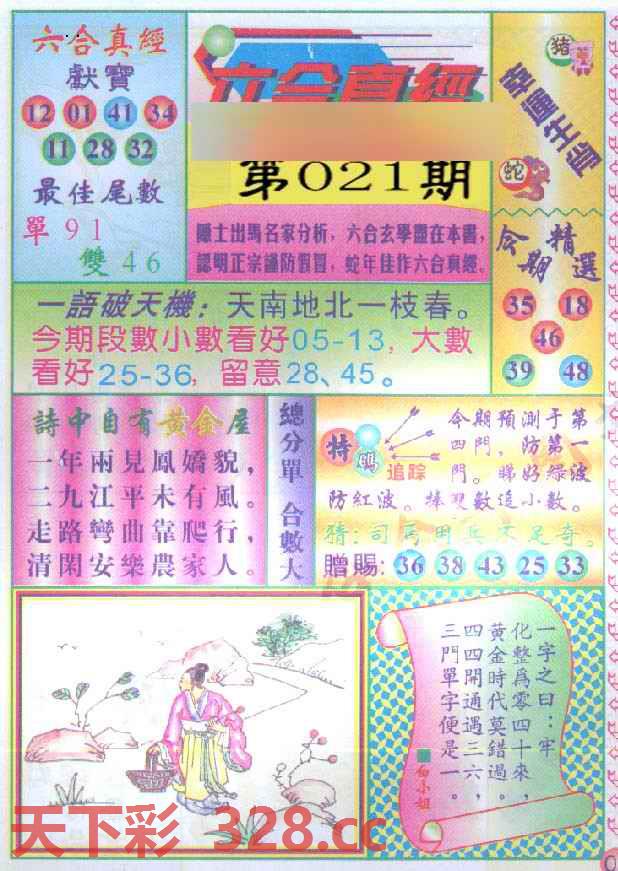 六合真經
獻寶
12 01 41 34
11 28 32
最佳尾數
單91
雙46
六合真經
第021期
隱士出馬名家分析，六合玄學盡在本書，
認明正宗謹防假冒，蛇年佳作六合真經。
豬
蛇
今期精選
35 18
46
39 48
一語破天機：天南地北一枝春。
今期段數小數看好05-13，大數
看好25-36，留意28、45。
詩中自有黃金屋
一年兩見鳳嬌貌，
二九江平未有風。
走路彎曲靠爬行，
清閑安樂農家人。
總分單 合數大
特碼追踪
今期預測于第
四門，防第一
門。睇好綠波
防紅波。捧雙數追小數。
猜：司馬用兵不足奇。
贈賜：36 38 43 25 33
一字之曰：牢
化整爲零四十來，
黃金時代莫錯過。
四四開通遇三六，
三門單字便是一。
白小姐
天下彩 328.cc